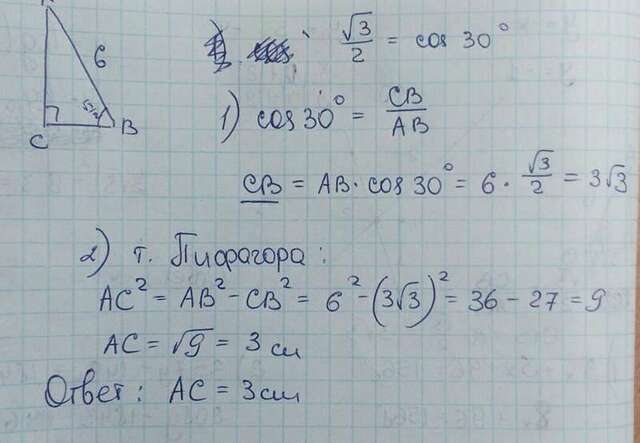 6
C
B
√3/2 = cos 30°
1) cos 30° = CB/AB
CB = AB · cos 30° = 6 · √3/2 = 3√3
2) т. Пифагора:
AC² = AB² - CB² = 6² - (3√3)² = 36 - 27 = 9
AC = √9 = 3 см
Ответ: AC = 3 см